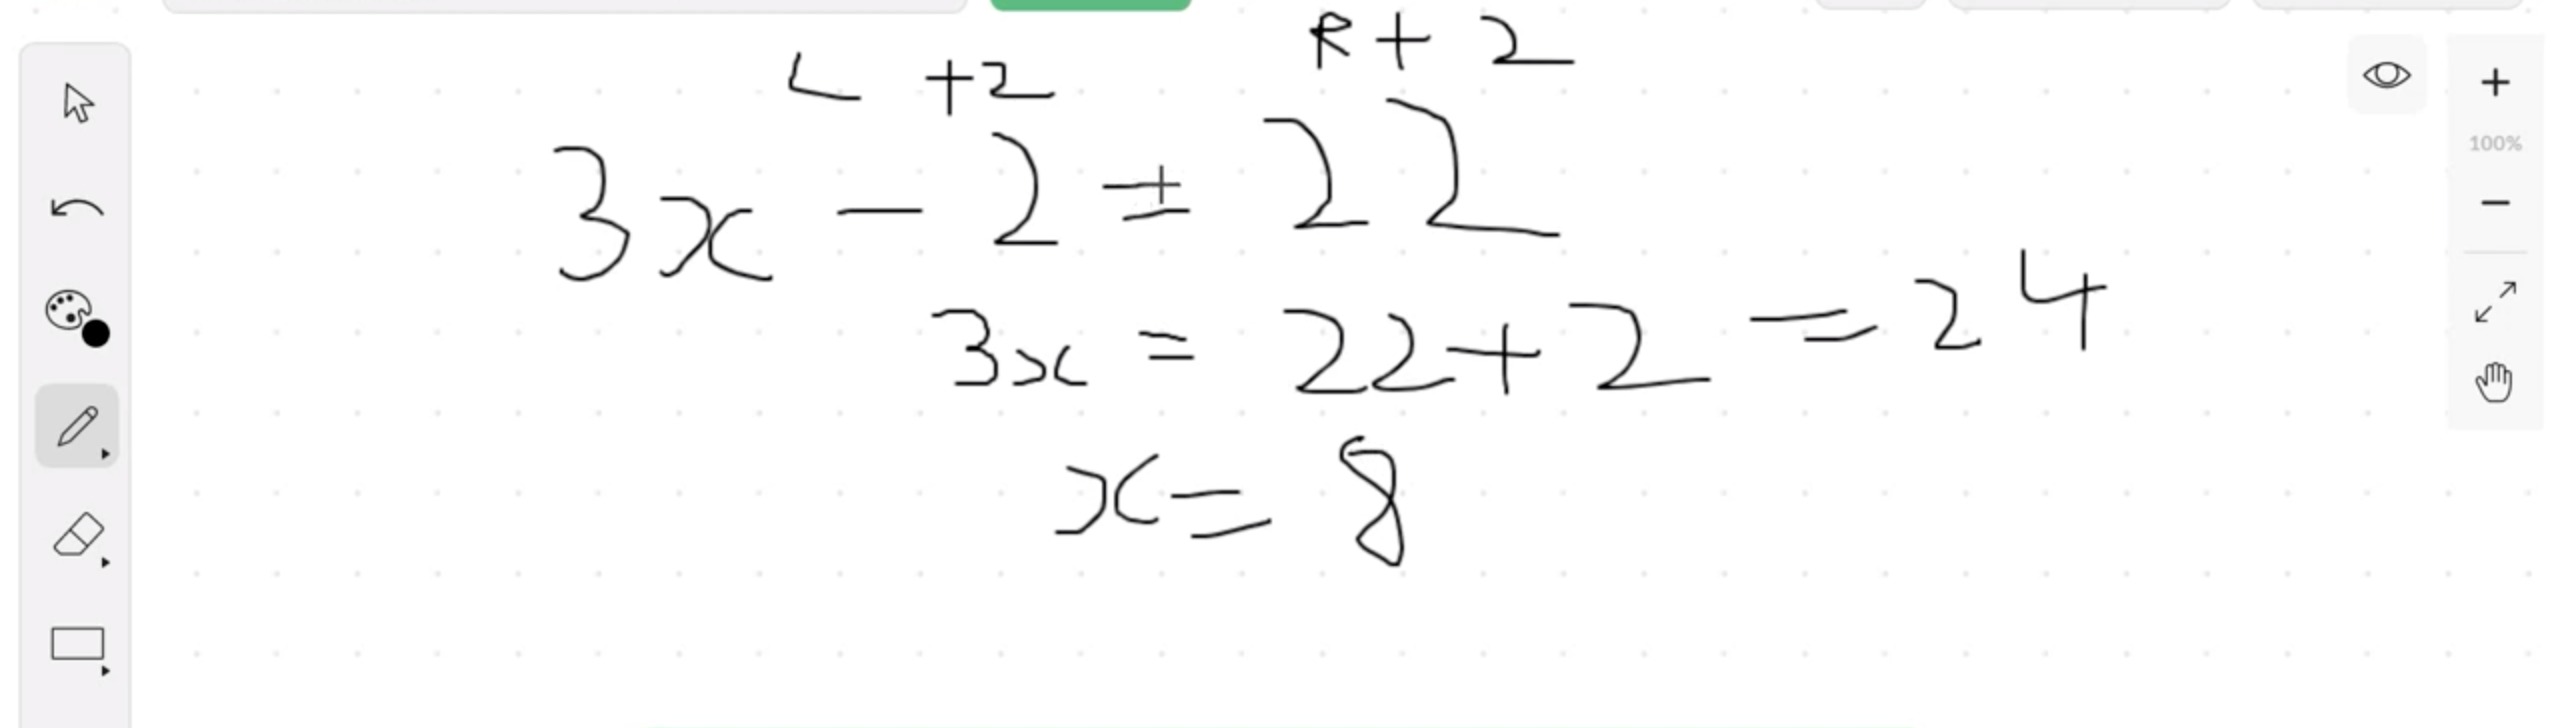 R + 2
L +2
3x - 2 = 22
3x = 22 + 2 = 24
x = 8
100%